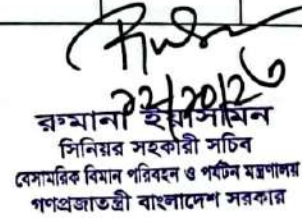 রুমানা ইয়াসমিন
সিনিয়র সহকারী সচিব
বেসামরিক বিমান পরিবহন ও পর্যটন মন্ত্রণালয়
গণপ্রজাতন্ত্রী বাংলাদেশ সরকার